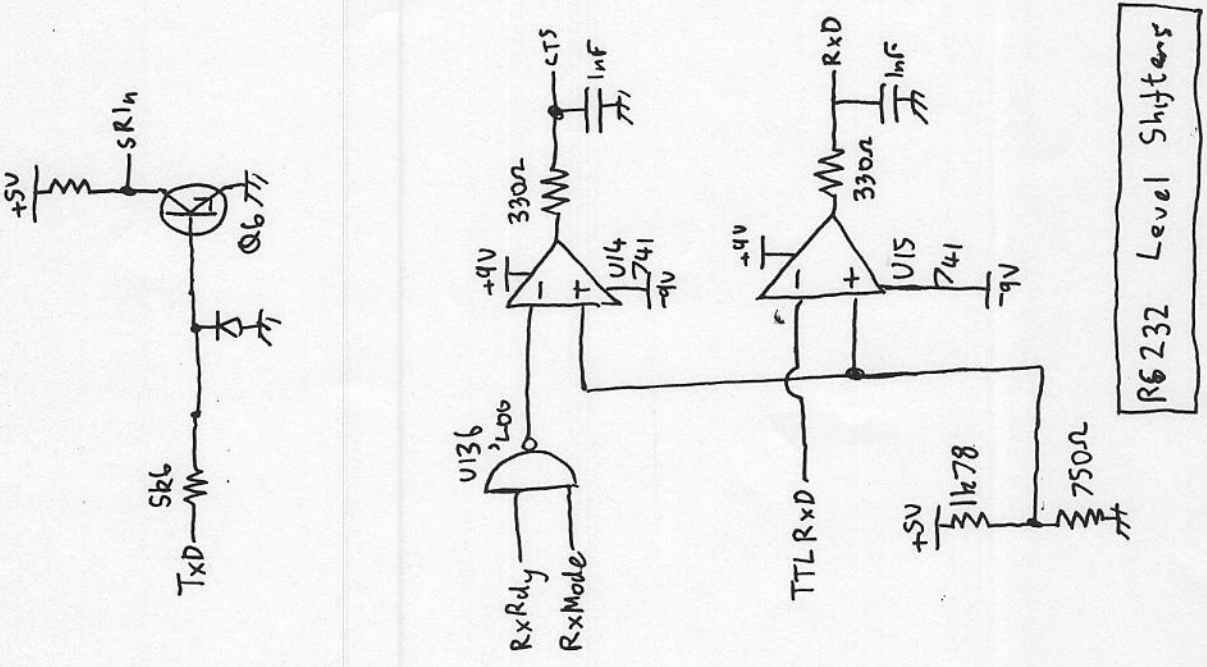 +5V
SRIn
Q6
5k6
TxD
CTS
1nF
330Ω
+9V
-
+
U14
741
-9V
U13b
'LOO
RxRdy
RxMode
RxD
1nF
330Ω
+9V
-
+
U15
741
-9V
TTL RxD
+5V
1k78
750Ω
RS232 Level Shifters